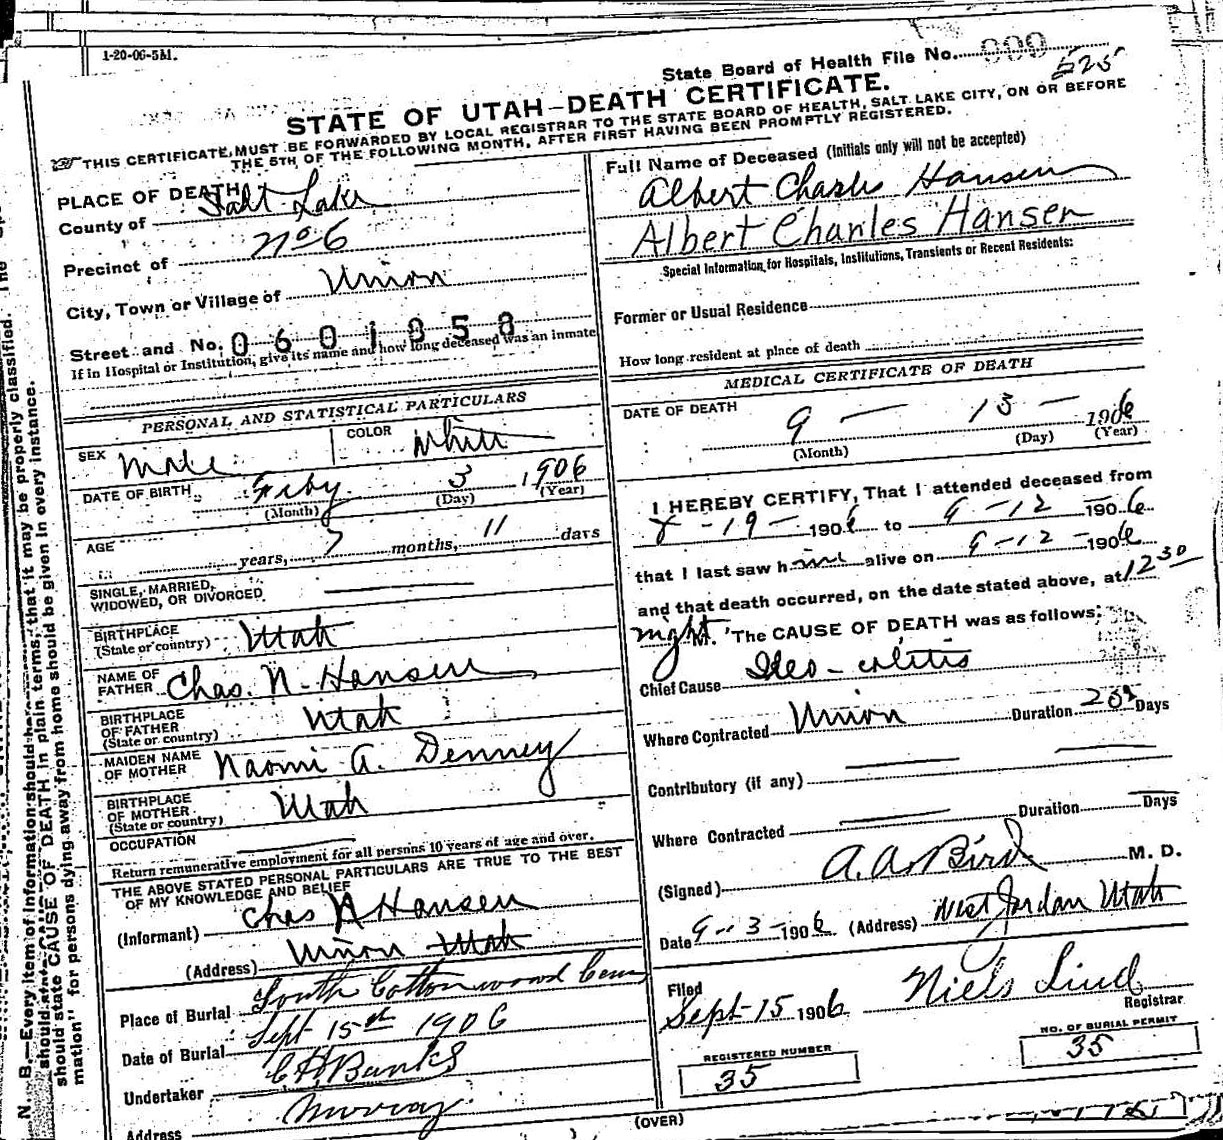 1-20-06-5M.
State Board of Health File No. 009
525
STATE OF UTAH—DEATH CERTIFICATE.
THIS CERTIFICATE MUST BE FORWARDED BY LOCAL REGISTRAR TO THE STATE BOARD OF HEALTH, SALT LAKE CITY, ON OR BEFORE
THE 5TH OF THE FOLLOWING MONTH, AFTER FIRST HAVING BEEN PROMPTLY REGISTERED.
PLACE OF DEATH
County of Salt Lake
Precinct of No 6
City, Town or Village of Union
Street and No. 0601858
If in Hospital or Institution, give its name and how long deceased was an inmate
PERSONAL AND STATISTICAL PARTICULARS
SEX Male COLOR White
DATE OF BIRTH Feby 3 1906
(Month) (Day) (Year)
AGE years, 7 months, 11 days
SINGLE, MARRIED,
WIDOWED, OR DIVORCED
BIRTHPLACE
(State or country) Utah
NAME OF
FATHER Chas. N. Hansen
BIRTHPLACE
OF FATHER
(State or country) Utah
MAIDEN NAME
OF MOTHER Naomi A. Denney
BIRTHPLACE
OF MOTHER
(State or country) Utah
OCCUPATION
Return remunerative employment for all persons 10 years of age and over.
THE ABOVE STATED PERSONAL PARTICULARS ARE TRUE TO THE BEST
OF MY KNOWLEDGE AND BELIEF
(Informant) Chas N Hansen
(Address) Union Utah
Place of Burial South Cottonwood Cem
Date of Burial Sept 15th 1906
Undertaker Banks
Address Murray
Full Name of Deceased (Initials only will not be accepted)
Albert Charles Hansen
Albert Charles Hansen
Special Information for Hospitals, Institutions, Transients or Recent Residents:
Former or Usual Residence
How long resident at place of death
MEDICAL CERTIFICATE OF DEATH
DATE OF DEATH 9 — 13 — 1906
(Month) (Day) (Year)
I HEREBY CERTIFY, That I attended deceased from
8 - 19 - 1906 to 9 - 12 - 1906
that I last saw him alive on 9 - 12 - 1906
and that death occurred, on the date stated above, at 12 30
night M. The CAUSE OF DEATH was as follows:
Chief Cause Ileo-colitis
Where Contracted Union Duration Days
Contributory (if any)
Where Contracted Duration Days
(Signed) A. A. Bird M. D.
Date 9-3-1906 (Address) West Jordan Utah
Filed
Sept-15 1906 Niels Lind
Registrar
REGISTERED NUMBER
35
NO. OF BURIAL PERMIT
35
(OVER)
N. B.—Every item of information should
should state CAUSE OF DEATH in plain terms, that it may be properly classified. The
mation" for persons dying away from home should be given in every instance.